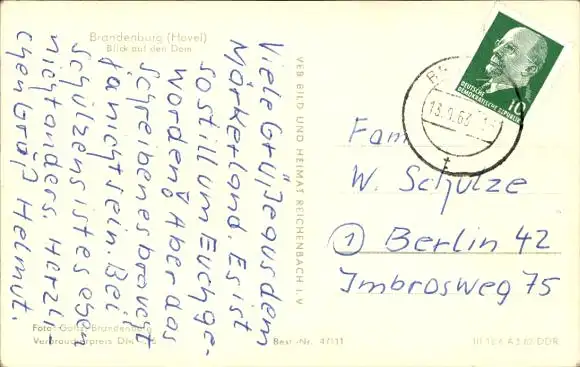 Brandenburg (Havel)
Blick auf den Dom
Viele Grüße aus dem
Märkerland. Es ist
so still um Euch ge-
worden? Aber das
Schreiben es braucht
ja nicht sein. Bei
Schulzens ist es eben
nicht anders. Herzli
chen Gruß Helmut.
Foto: Goltz, Brandenburg
Verbraucherpreis DM
VEB BILD UND HEIMAT REICHENBACH I. V
Best.-Nr. 47111
DEUTSCHE
DEMOKRATISCHE REPUBLIK
10
13.9.63
Fam
W. Schulze
1 Berlin 42
Imbrosweg 75
A 3.62 DDR